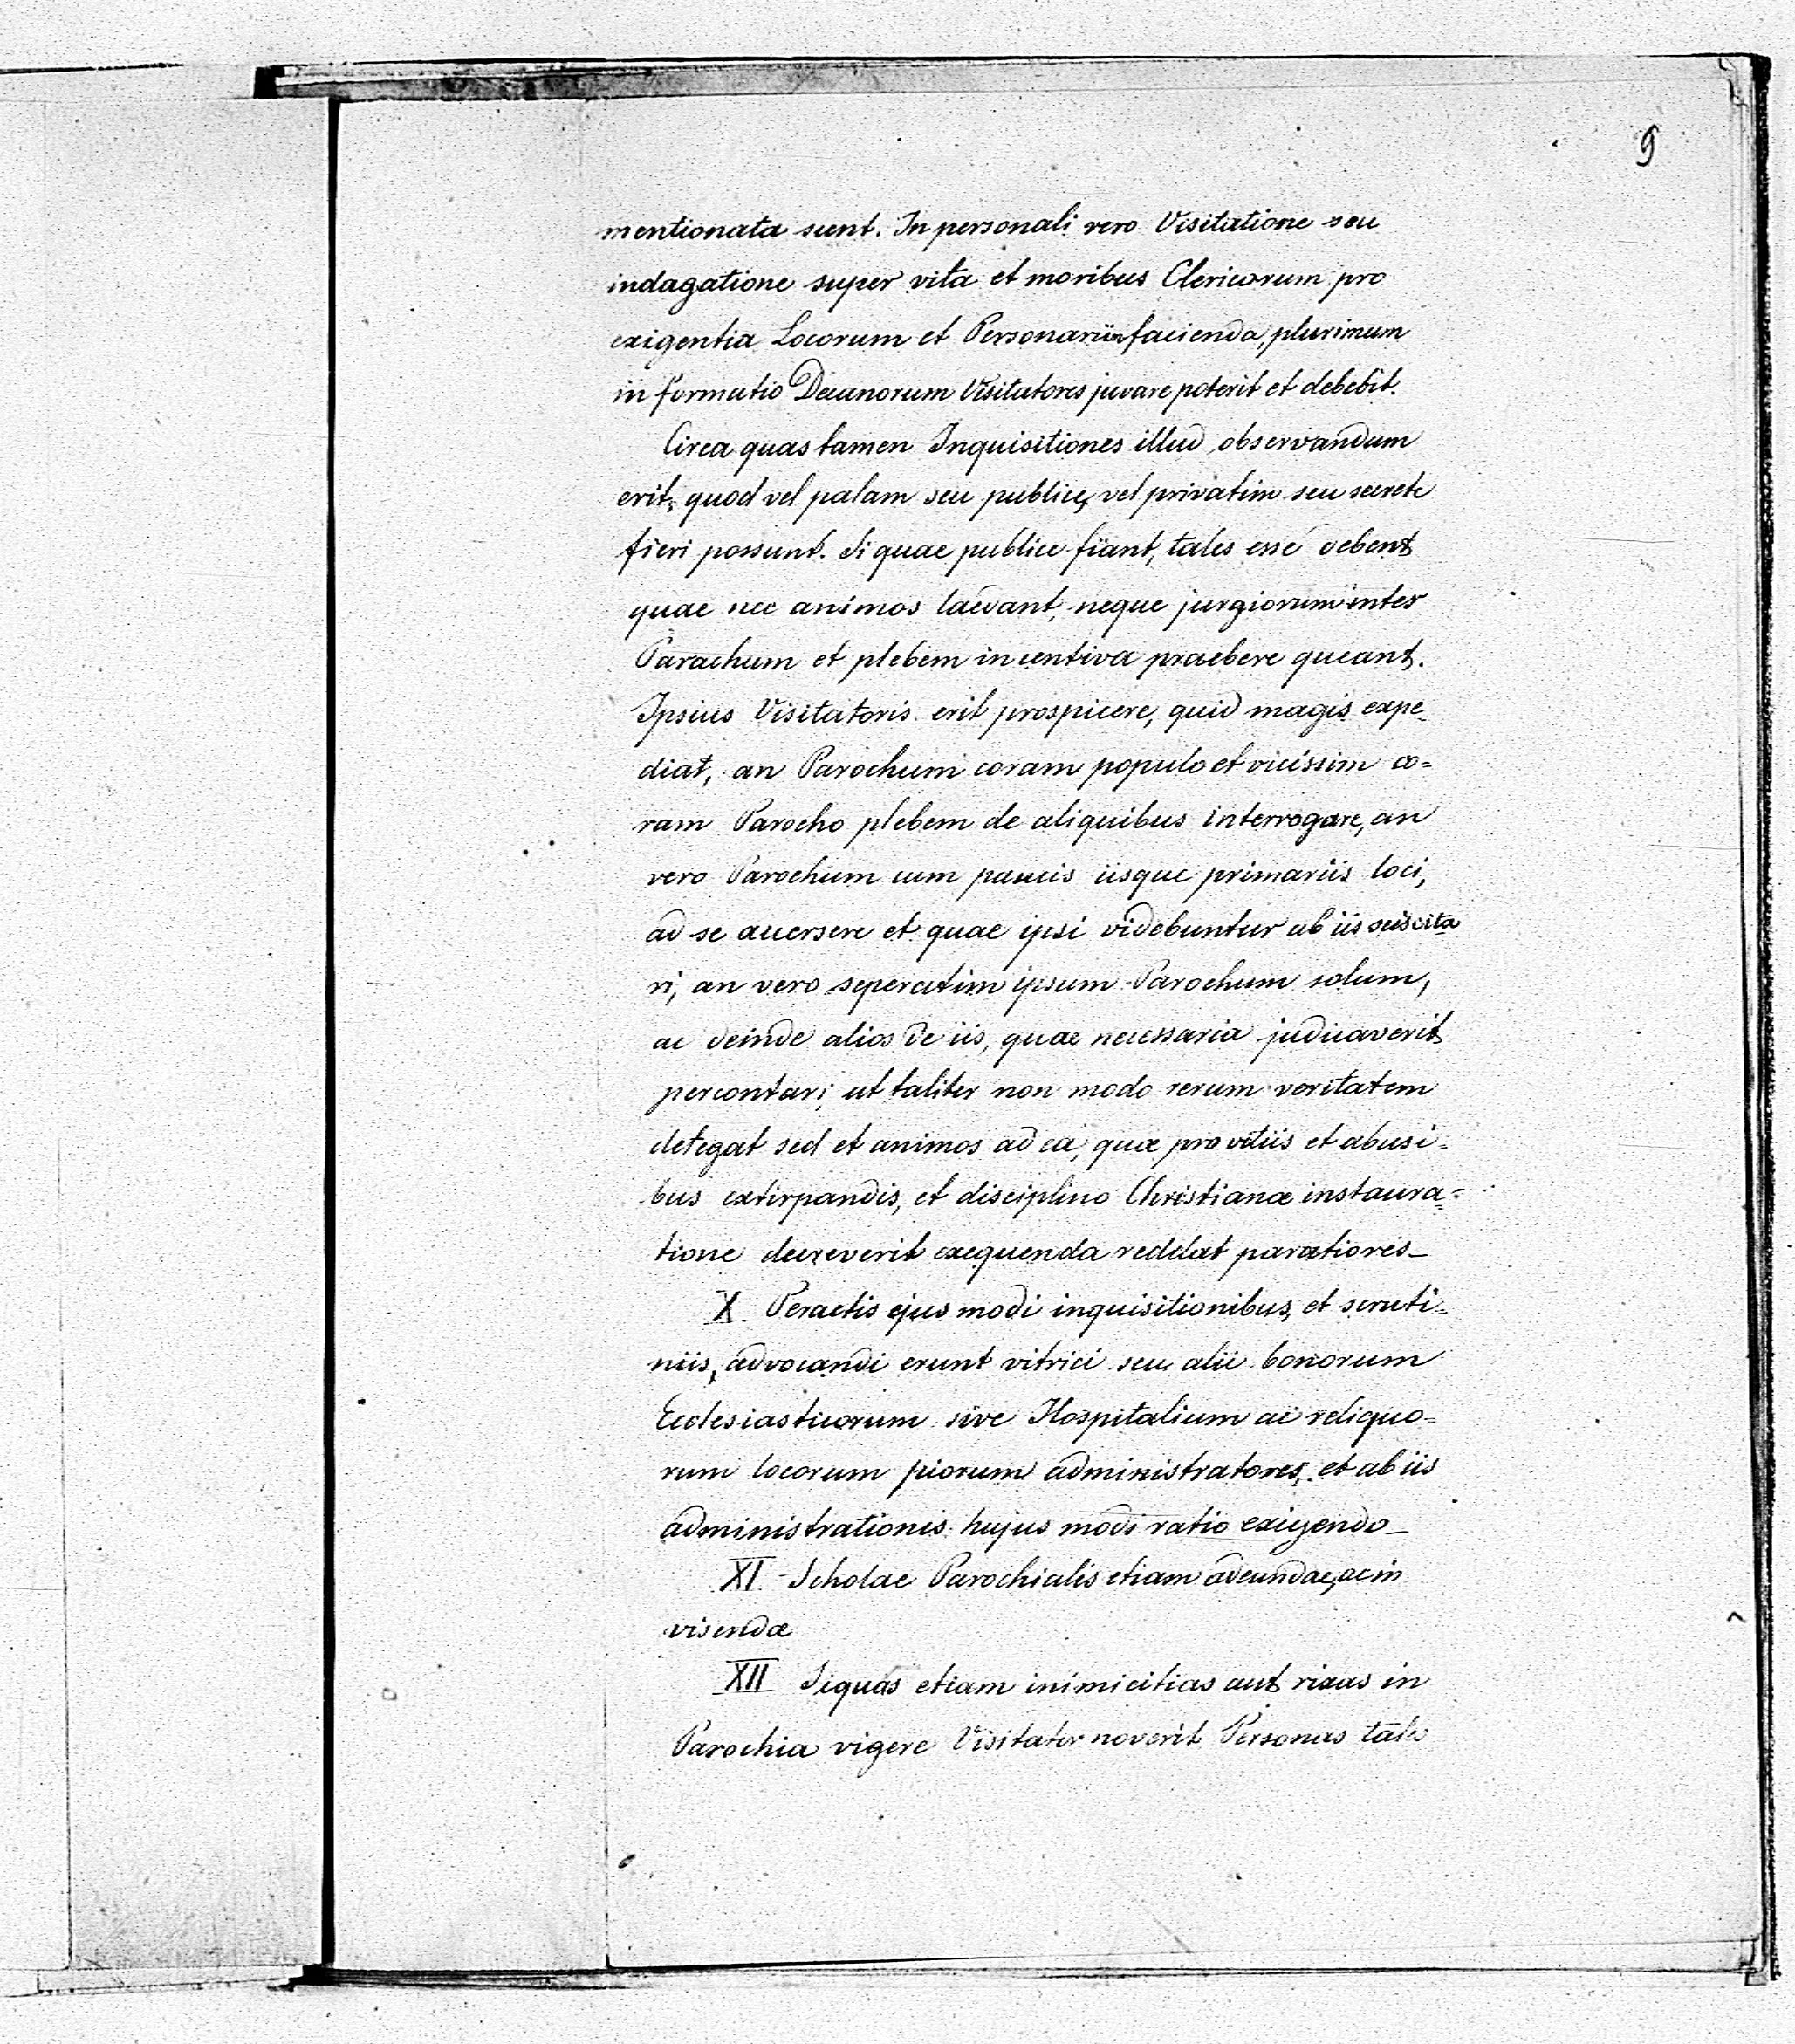 9
mentionata sunt. In personali vero Visitatione seu
indagatione super vita et moribus Clericorum pro
exigentia Locorum et Personarum facienda, plurimum
in formatio Decanorum Visitatores juvare poterit et debebit.
Circa quas tamen Inquisitiones illud observandum
erit, quod vel palam seu publice, vel privatim seu secrete
fieri possunt. Si quae publice fiant, tales esse debent
quae nec animos laedant, neque jurgiorum inter
Parachum et plebem incentiva praebere queant.
Ipsius Visitatoris erit prospicere, quid magis expe-
diat, an Parochum coram populo et vicissim co=
ram Parocho plebem de aliquibus interrogare, an
vero Parochum cum paucis iisque primariis loci,
ad se accersere et quae ipsi videbuntur ab iis suiscita
ri, an vero seperatim ipsum Parochum solum,
ac deinde alios de iis, quae necessaria judicaverit
percontari, ut taliter non modo rerum veritatem
detegat sed et animos ad ea, quae pro vitiis et abusi-
bus extirpandis, et disciplino Christianae instaura=
tione decreverit exequenda reddat paratiores_
X Peractis ejus modi inquisitionibus, et scruti=
niis, advocandi erunt vitrici seu alii bonorum
Ecclesiasticorum sive Hospitalium ac reliquo=
rum locorum piorum administratores, et ab iis
administrationis hujus modi ratio exigendo_
XI Scholae Parochialis etiam adeundae, ac in
visendae
XII Siquas etiam inimicitias aut rixas in
Parochia vigere Visitator noverit Personas tales